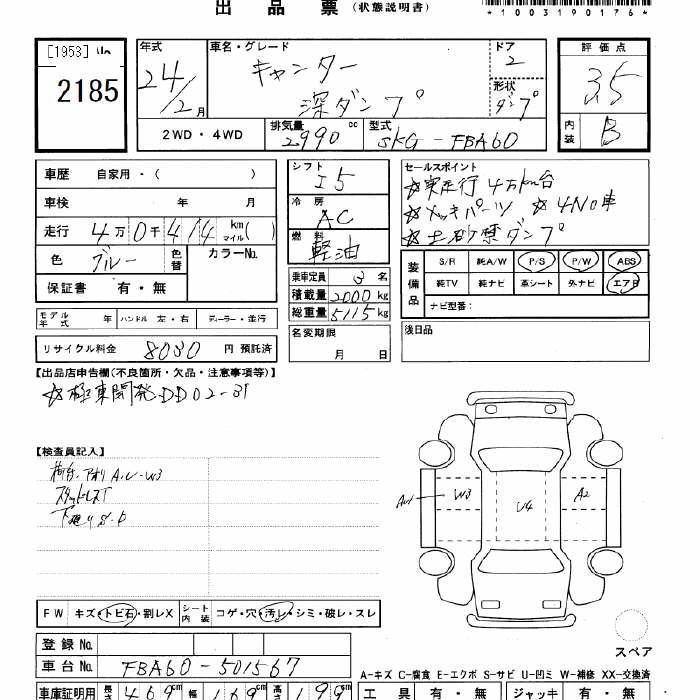 出品票 (状態説明書)
*1003190176*
[1953]
2185
年式
24/2月
車名・グレード
キャンター
深ダンプ
ドア
2
形状
ダンプ
評価点
3.5
内装
B
2WD・4WD
排気量
2990cc
型式
SKG-FBA60
車歴 自家用・( )
車検 年 月
走行 4万0千414km マイル( )
色 ブルー 色替 カラーNo.
保証書 有・無
シフト
I5
冷房
AC
燃料
軽油
乗車定員 3名
積載量 2000kg
総重量 5115kg
名変期限
月 日
セールスポイント
☆実走行4万km台
☆メッキパーツ ☆4NO車
☆土砂禁ダンプ
装備品
S/R 純A/W P/S P/W ABS
純TV 純ナビ 革シート 外ナビ エアB
ナビ型番:
後日品
モデル年式 年 ハンドル 左・右 ディーラー・並行
リサイクル料金 8030円 預託済
【出品店申告欄(不良箇所・欠品・注意事項等)】
☆極東開発DD02-31
【検査員記入】
荷台、アオリA.U-W3
スタッドレスT
下廻りS-P
AU1 W3 U4 A2
FW キズ・トビ石・割レX シート内装 コゲ・穴・汚レ・シミ・破レ・スレ
登録No.
車台No. FBA60-501567
スペア
A-キズ C-腐食 E-エクボ S-サビ U-凹ミ W-補修 XX-交換済
車庫証明用 長さ 469cm 幅 169cm 高さ 199cm
工具 有・無 ジャッキ 有・無